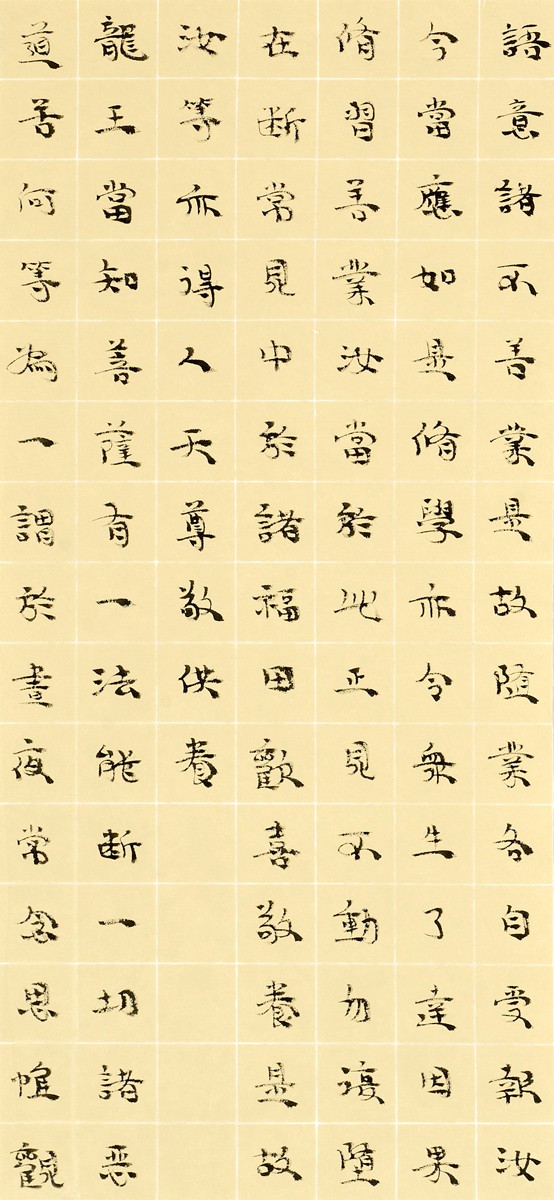 語意諸不善業是故随業各自受報汝
今當應如是脩學亦令衆生了達因果
脩習善業汝當於此正見不動勿復墮
在断常見中於諸福田歡喜敬養是故
汝等亦得人天尊敬供養
龍王當知菩薩有一法能断一切諸恶
道苦何等為一謂於晝夜常念思惟觀